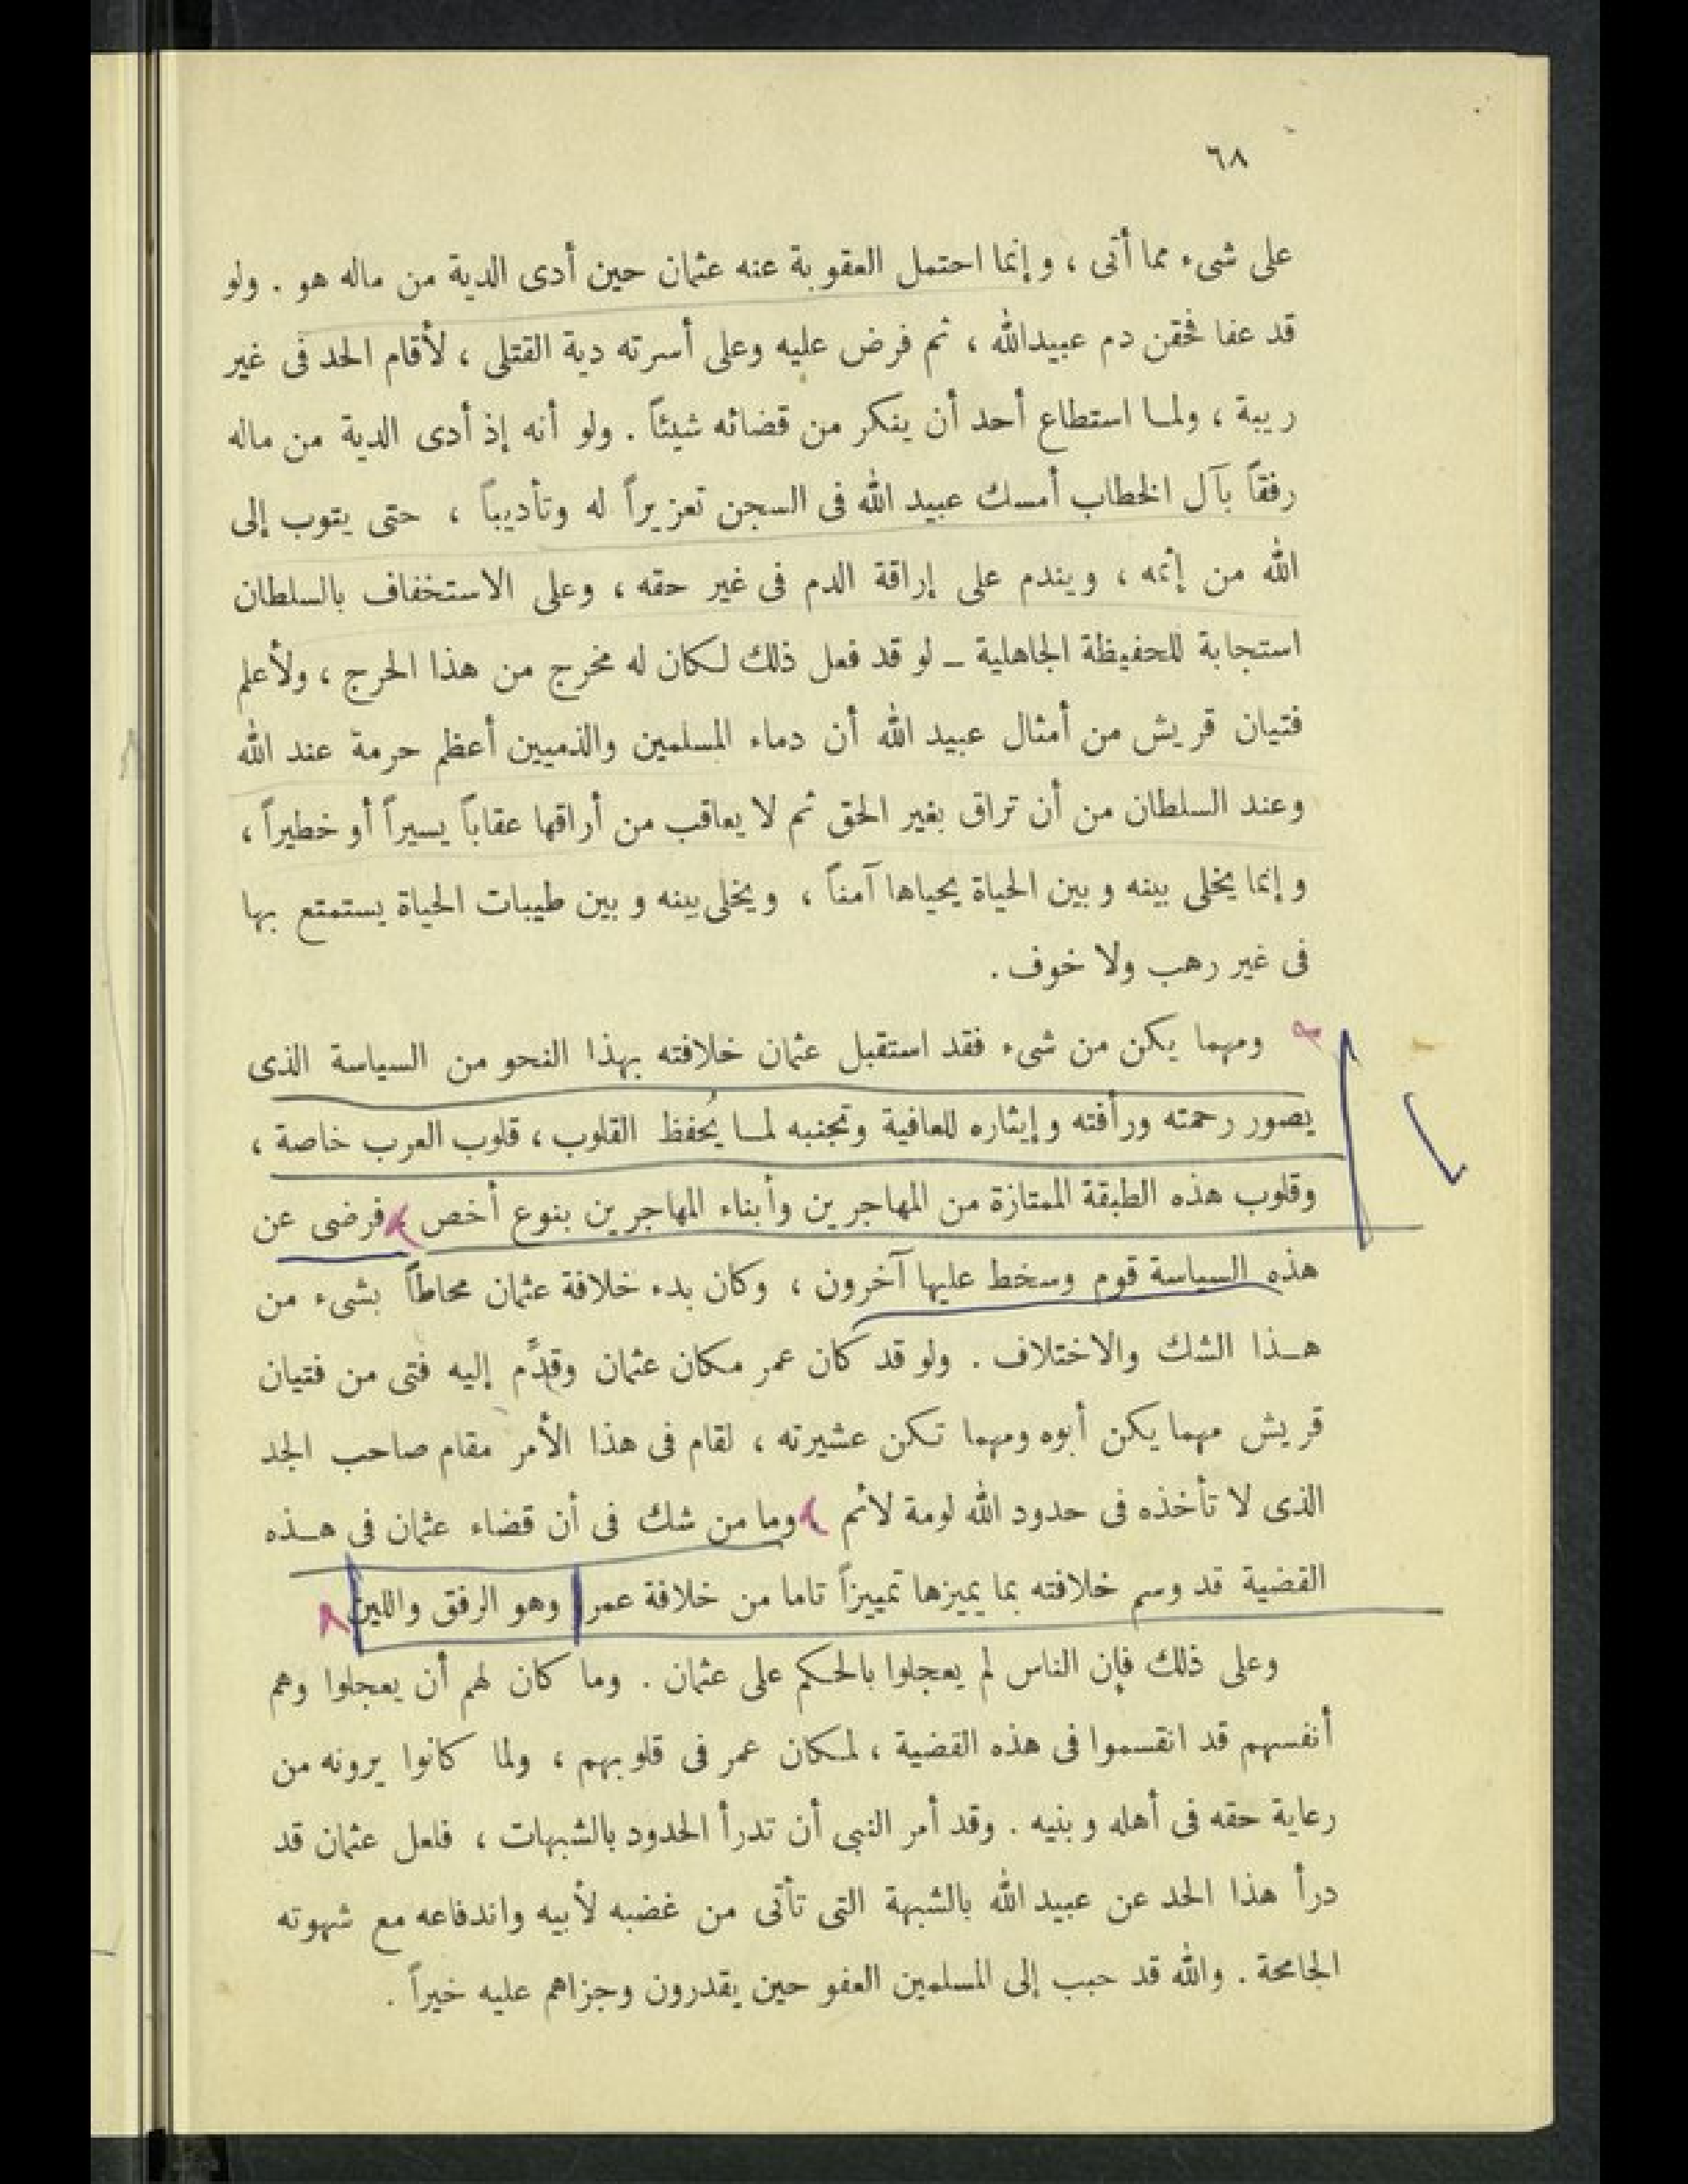 ٦٨
على شىء مما أتى ، و إنما احتمل العقوبة عنه عثمان حين أدى الدية من ماله هو . ولو
قد عفا فحقن دم عبيدالله ، ثم فرض عليه وعلى أسرته دية القتلى ، لأقام الحد فى غير
ريبة ، ولما استطاع أحد أن ينكر من قضائه شيئاً . ولو أنه إذ أدى الدية من ماله
رفقاً بآل الخطاب أمسك عبيد الله فى السجن تعزيراً له وتأديباً ، حتى يتوب إلى
الله من إثمه ، ويندم على إراقة الدم فى غير حقه ، وعلى الاستخفاف بالسلطان
استجابة للحفيظة الجاهلية – لو قد فعل ذلك لكان له مخرج من هذا الحرج ، ولأعلم
فتيان قريش من أمثال عبيد الله أن دماء المسلمين والذميين أعظم حرمة عند الله
وعند السلطان من أن تراق بغير الحق ثم لا يعاقب من أراقها عقاباً يسيراً أو خطيراً ،
و إنما يخلى بينه و بين الحياة يحياها آمناً ، ويخلى بينه و بين طيبات الحياة يستمتع بها
فى غير رهب ولا خوف .
ومهما يكن من شىء فقد استقبل عثمان خلافته بهذا النحو من السياسة الذى
يصور رحمته ورأفته و إيثاره للعافية وتجنبه لما يُحفظ القلوب ، قلوب العرب خاصة ،
وقلوب هذه الطبقة الممتازة من المهاجرين وأبناء المهاجرين بنوع أخص . فرضى عن
هذه السياسة قوم وسخط عليها آخرون ، وكان بدء خلافة عثمان محاطاً بشىء من
هـذا الشك والاختلاف . ولو قد كان عمر مكان عثمان وقدِّم إليه فتى من فتيان
قريش مهما يكن أبوه ومهما تكن عشيرته ، لقام فى هذا الأمر مقام صاحب الجد
الذى لا تأخذه فى حدود الله لومة لائم . وما من شك فى أن قضاء عثمان فى هـذه
القضية قد وسم خلافته بما يميزها تمييزاً تاما من خلافة عمر وهو الرفق واللين
وعلى ذلك فإن الناس لم يعجلوا بالحكم على عثمان . وما كان لهم أن يعجلوا وهم
أنفسهم قد انقسموا فى هذه القضية ، لمكان عمر فى قلوبهم ، ولما كانوا يرونه من
رعاية حقه فى أهله و بنيه . وقد أمر النبى أن تدرأ الحدود بالشبهات ، فلعل عثمان قد
درأ هذا الحد عن عبيد الله بالشبهة التى تأتى من غضبه لأبيه واندفاعه مع شهوته
الجامحة . والله قد حبب إلى المسلمين العفو حين يقدرون وجزاهم عليه خيراً .